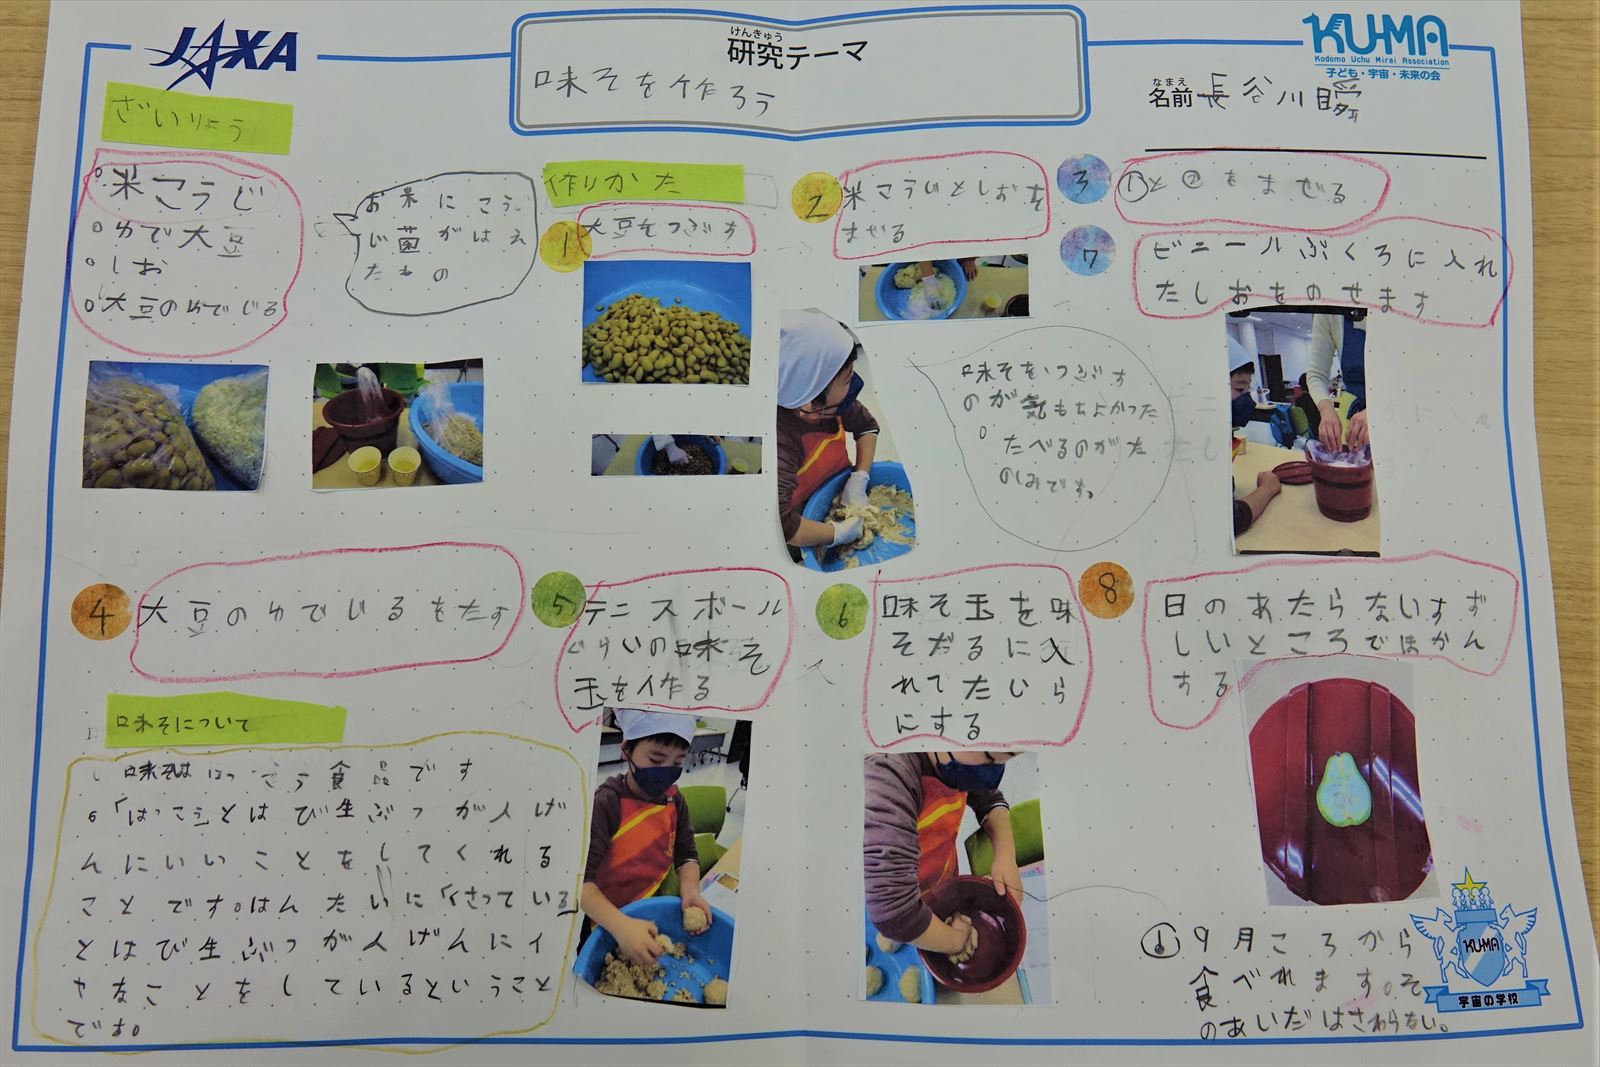 JAXA
けんきゅう
研究テーマ
味そを作ろう
KU-MA
Kodomo Uchu Mirai Association
子ども・宇宙・未来の会
なまえ
名前 長谷川瞬
ざいりょう
米こうじ
ゆで大豆
しお
大豆のゆでじる
お米にこう
じ菌がはえ
たもの
作りかた
1
大豆をつぶす
2
米こうじとしおを
まぜる
味そをつぶす
のが気もちよかった
。
たべるのがた
のしみです。
3
①と②をまぜる
7
ビニールぶくろに入れ
たしおをのせます
4
大豆のゆでじるをたす
5
テニスボール
ぐらいの味そ
玉を作る
6
味そ玉を味
そだるに入
れてたいら
にする
8
日のあたらないすず
しいところでほかん
する
味そについて
味そははっこう食品です
「はっこう」とはび生ぶつが人げ
んにいいことをしてくれる
ことです。はんたいに「くさっている」
とはび生ぶつが人げんにイ
ヤなことをしているということ
です。
9月ころから
食べれます。そ
のあいだはさわらない。
KU-MA
宇宙の学校